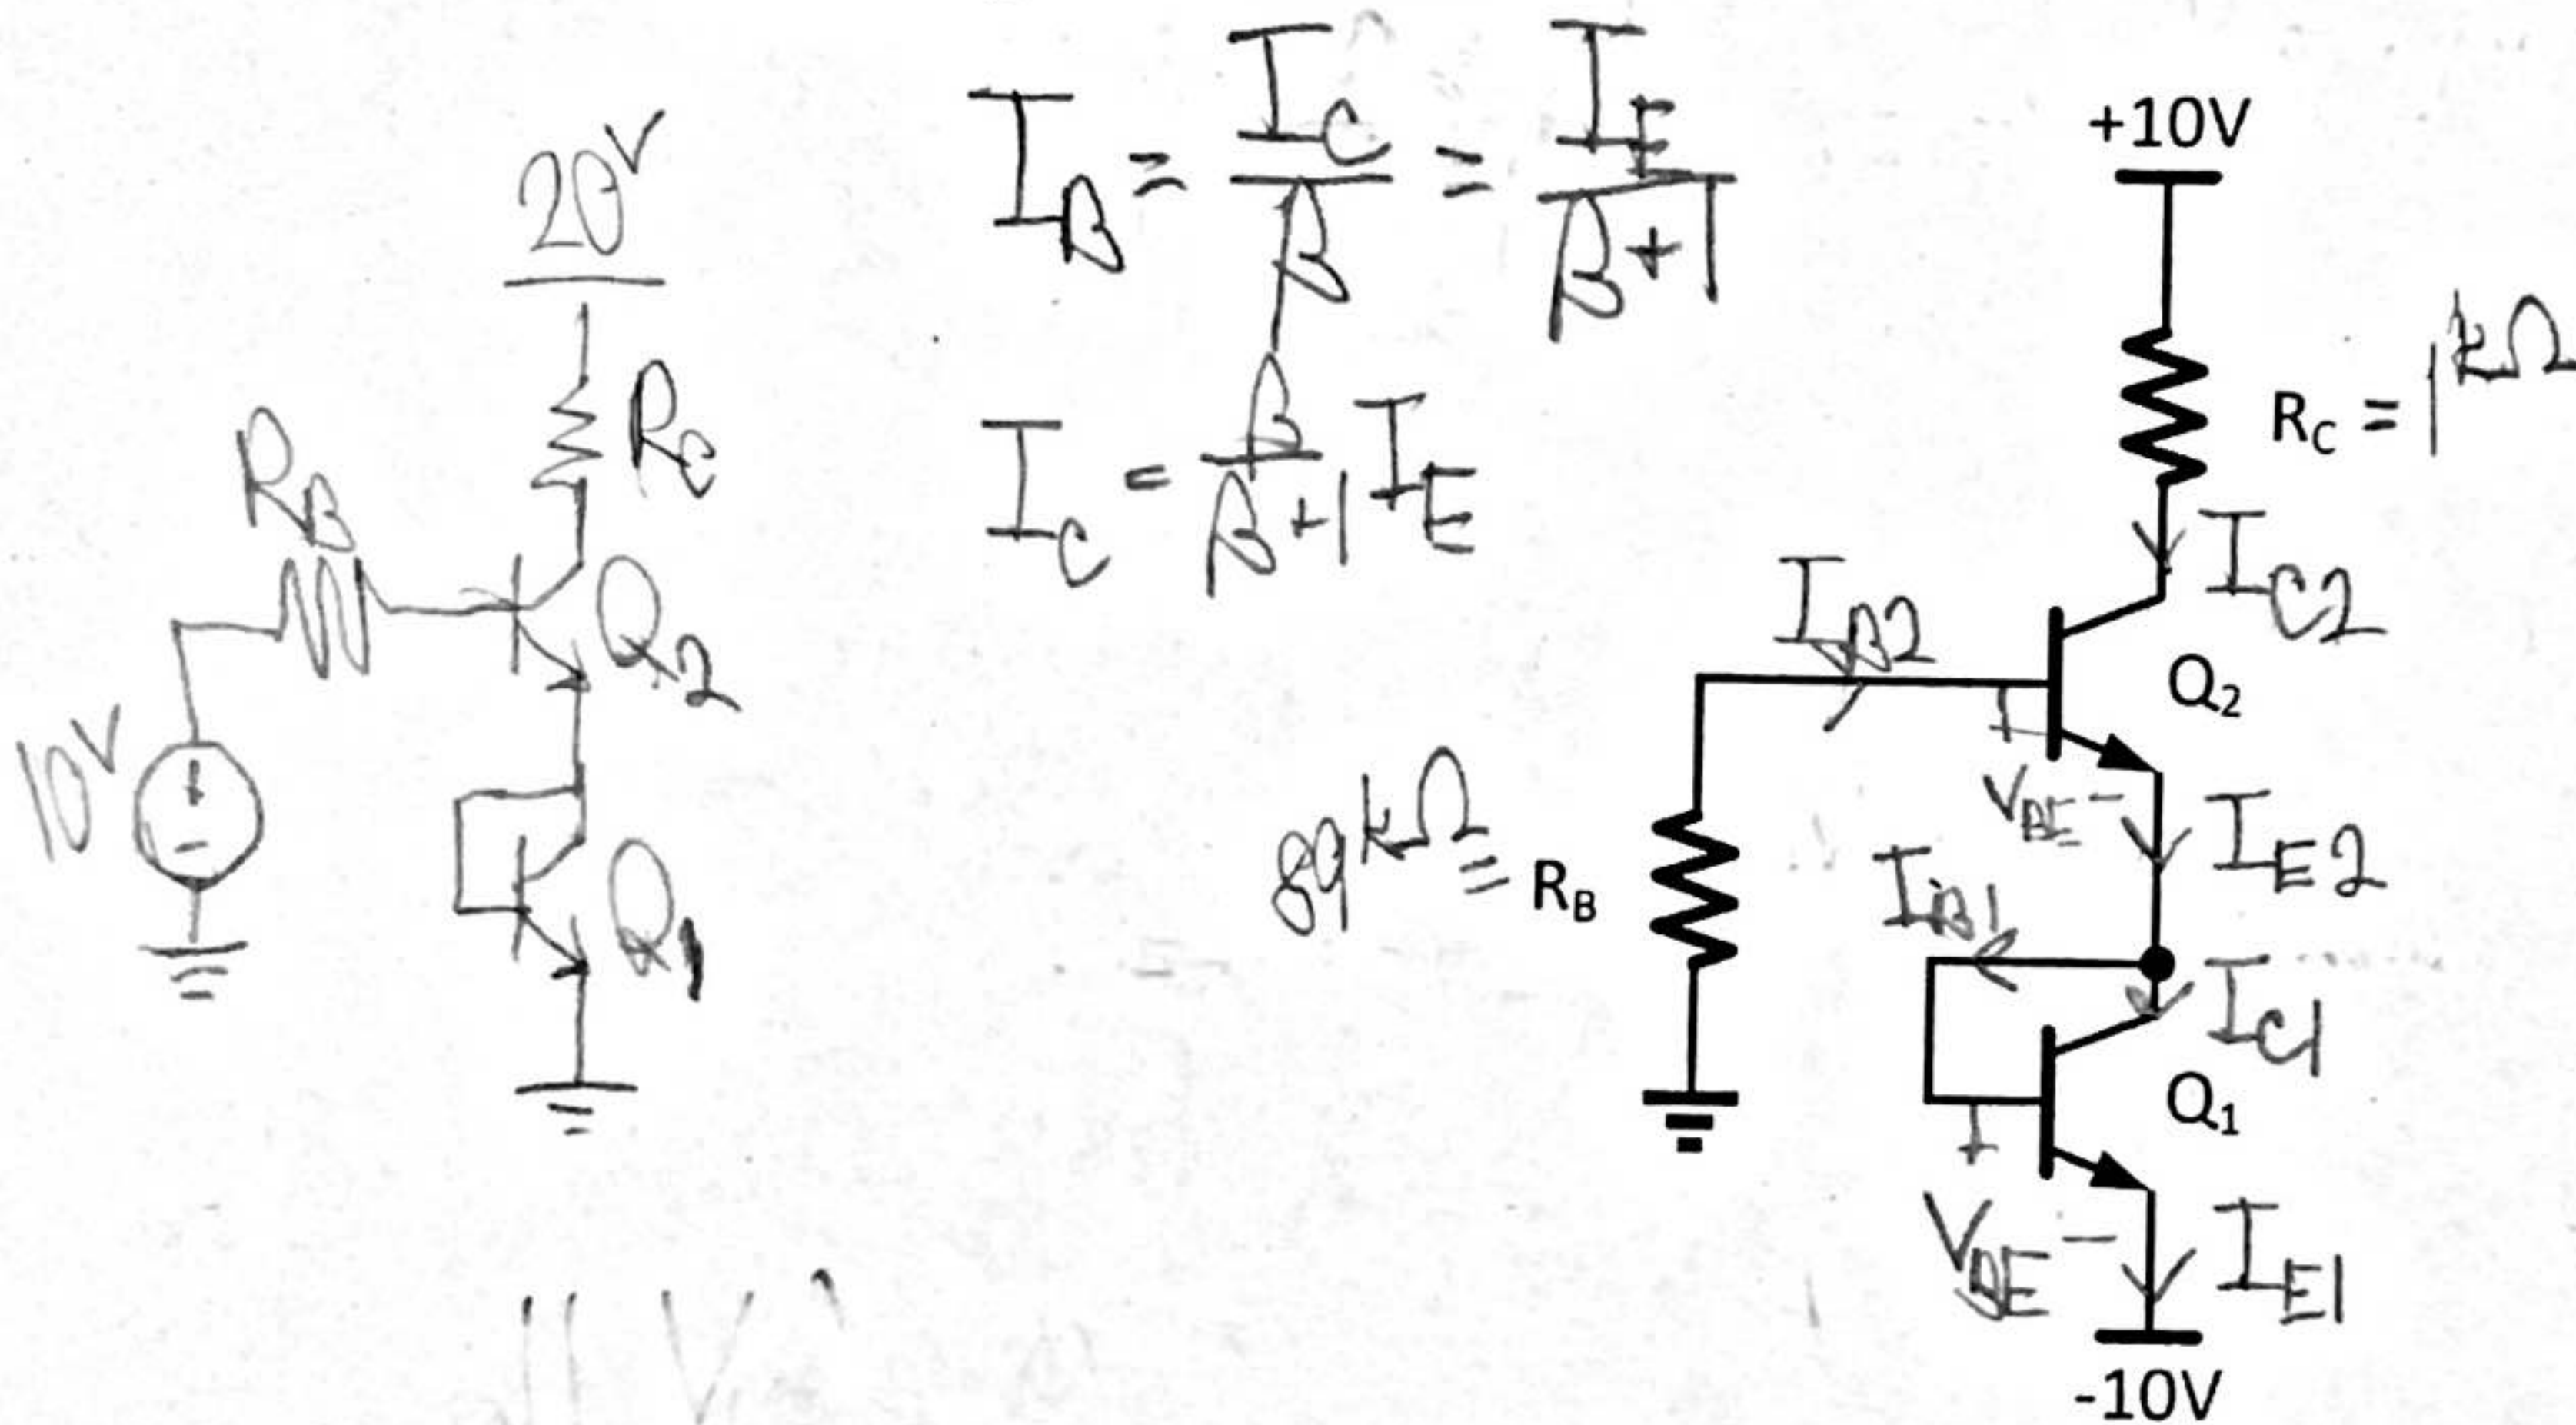 20V
R_C
R_B
Q_2
10V
+
-
Q_1
I_B = I_C / β = I_E / β+1
I_C = β / β+1 I_E
+10V
R_C = 1kΩ
I_C2
I_B2
Q_2
+
V_BE -
I_E2
89kΩ = R_B
I_B1
I_C1
Q_1
+
V_BE -
I_E1
-10V